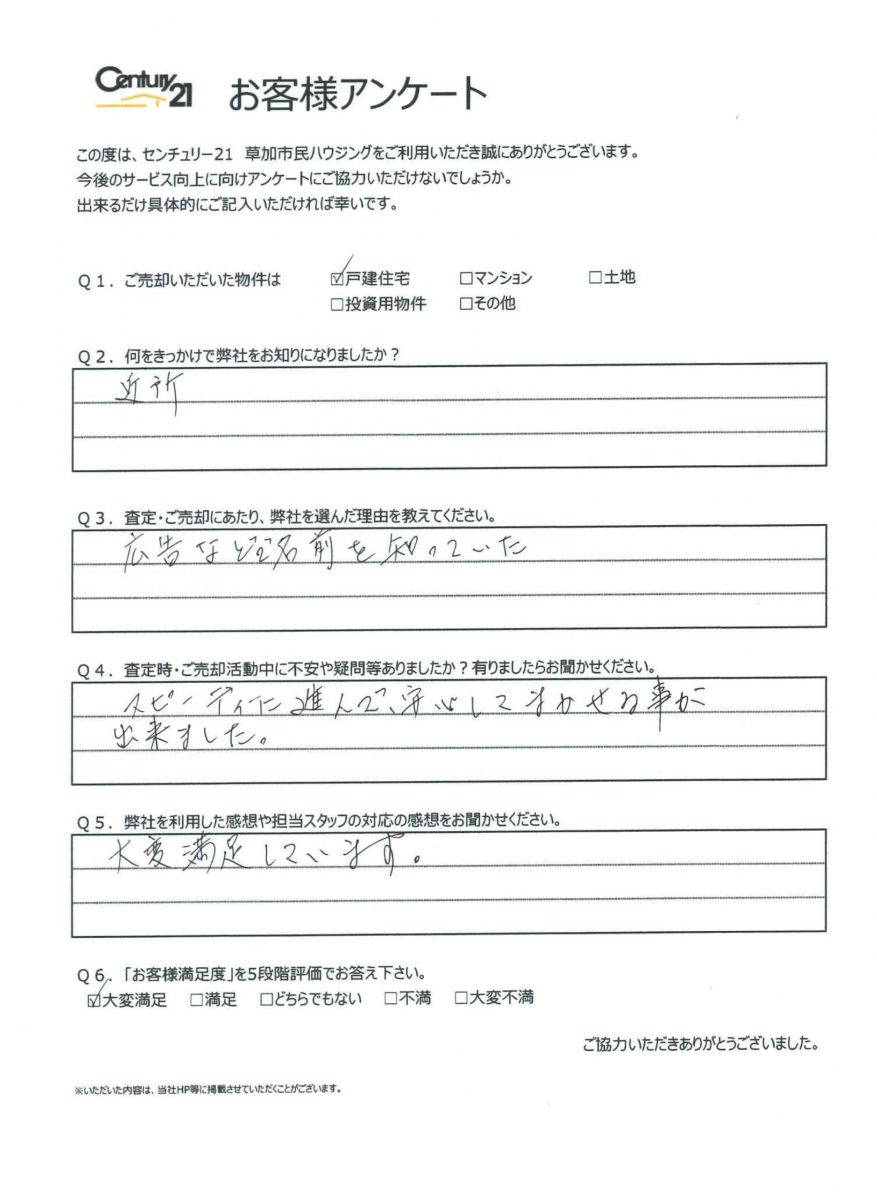 Century 21 お客様アンケート
この度は、センチュリー21 草加市民ハウジングをご利用いただき誠にありがとうございます。
今後のサービス向上に向けアンケートにご協力いただけないでしょうか。
出来るだけ具体的にご記入いただければ幸いです。
Q1. ご売却いただいた物件は ☑戸建住宅 □マンション □土地
□投資用物件 □その他
Q2. 何をきっかけで弊社をお知りになりましたか？
近所
Q3. 査定・ご売却にあたり、弊社を選んだ理由を教えてください。
広告などで名前を知っていた
Q4. 査定時・ご売却活動中に不安や疑問等ありましたか？有りましたらお聞かせください。
スピーディに進んで、安心してまかせる事が
出来ました。
Q5. 弊社を利用した感想や担当スタッフの対応の感想をお聞かせください。
大変満足しています。
Q6. 「お客様満足度」を5段階評価でお答え下さい。
☑大変満足 □満足 □どちらでもない □不満 □大変不満
ご協力いただきありがとうございました。
※いただいた内容は、当社HP等に掲載させていただくことがございます。